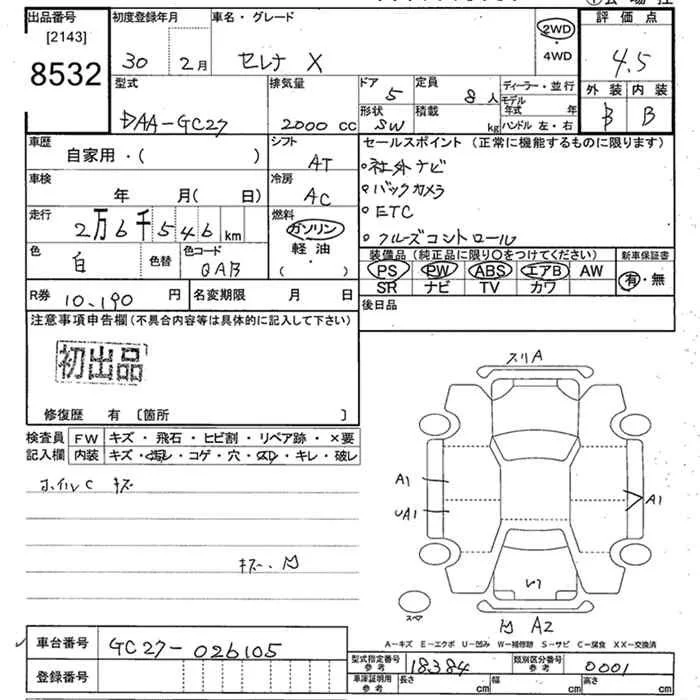 ①会場往
出品番号 初度登録年月 車名・グレード 評価点
[2143]
8532
30 2月 セレナ X 2WD・4WD 4.5
型式 排気量 ドア 定員 ディーラー・並行 外装 内装
DAA-GC27 2000 cc 5 8人 モデル年式 年 B B
形状 積載 ハンドル 左・右
SW kg
車歴 シフト セールスポイント (正常に機能するものに限ります)
自家用・( ) AT
社外ナビ
車検 冷房
年 月( 日) AC
バックカメラ
走行 燃料
2万6千546km ガソリン・軽油・( )
ETC
クルーズコントロール
色 色替 色コード
白 QAB
装備品 (純正品に限り○をつけてください) 新車保証書
PS PW ABS エアB AW 有・無
SR ナビ TV カワ
R券 10,190 円 名変期限 月 日 後日品
注意事項申告欄(不具合内容等は具体的に記入して下さい)
初出品
修復歴 有 [箇所 ]
検査員 FW キズ・飛石・ヒビ割・リペア跡・×要
記入欄 内装 キズ・汚れ・コゲ・穴・スレ・キレ・破レ
ホイルC キズ
キズ、凹
スリA
A1
UA1
A1
スペア
凹 A2
A-キズ E-エクボ U-凹み W-補修跡 S-サビ C-腐食 XX-交換済
車台番号 GC27-026105
登録番号
型式指定番号 参考 18384 類別区分番号 参考 0001
車庫証明用 参考 長さ cm 幅 cm 高さ cm